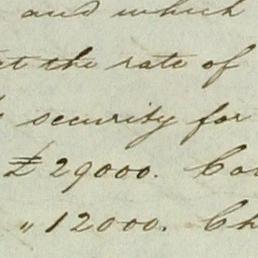 and which
at the rate of
security for
£29000.
" 12000.